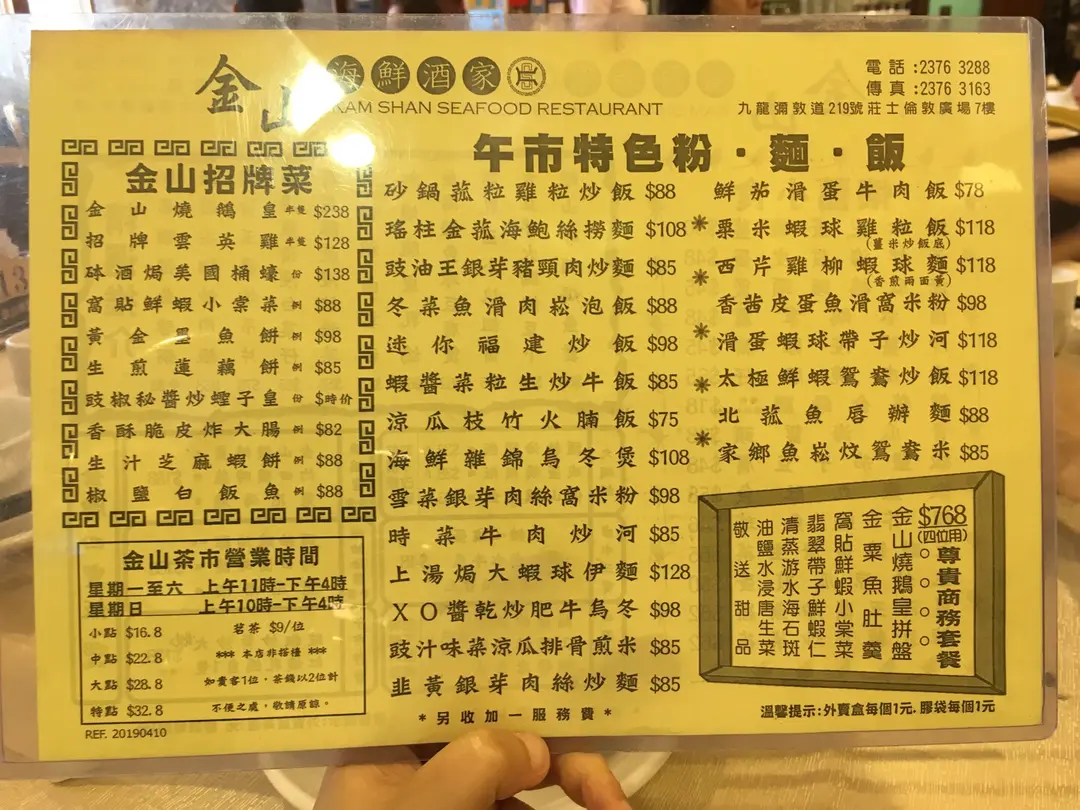 金山海鮮酒家
KAM SHAN SEAFOOD RESTAURANT
電話:2376 3288
傳真:2376 3163
九龍彌敦道219號莊士倫敦廣場7樓
金山招牌菜
金山燒鵝皇 半隻 $238
招牌雲英雞 半隻 $128
砵酒焗美國桶蠔 份 $138
窩貼鮮蝦小棠菜 例 $88
黃金墨魚餅 例 $98
生煎蓮藕餅 例 $85
豉椒秘醬炒蟶子皇 份 $時价
香酥脆皮炸大腸 例 $82
生汁芝麻蝦餅 例 $88
椒鹽白飯魚 例 $88
金山茶市營業時間
星期一至六 上午11時-下午4時
星期日 上午10時-下午4時
小點 $16.8
中點 $22.8
大點 $28.8
特點 $32.8
茗茶 $9/位
*** 本店非搭檯 ***
如貴客1位，茶錢以2位計
不便之處，敬請原諒。
REF. 20190410
午市特色粉·麵·飯
砂鍋菰粒雞粒炒飯 $88
瑤柱金菰海鮑絲撈麵 $108
豉油王銀芽豬頸肉炒麵 $85
冬菜魚滑肉崧泡飯 $88
迷你福建炒飯 $98
蝦醬菜粒生炒牛飯 $85
涼瓜枝竹火腩飯 $75
海鮮雜錦烏冬煲 $108
雪菜銀芽肉絲窩米粉 $98
時菜牛肉炒河 $85
上湯焗大蝦球伊麵 $128
XO醬乾炒肥牛烏冬 $98
豉汁味菜涼瓜排骨煎米 $85
韭黃銀芽肉絲炒麵 $85
*另收加一服務費*
鮮茄滑蛋牛肉飯 $78
* 粟米蝦球雞粒飯 $118
(薑米炒飯底)
* 西芹雞柳蝦球麵 $118
(香煎兩面黃)
香茜皮蛋魚滑窩米粉 $98
* 滑蛋蝦球帶子炒河 $118
* 太極鮮蝦鴛鴦炒飯 $118
北菰魚唇辦麵 $88
* 家鄉魚崧炆鴛鴦米 $85
$768
(四位用)
尊貴商務套餐
○金山燒鵝皇拼盤
○金粟魚肚羹
○窩貼鮮蝦小棠菜
○翡翠帶子鮮蝦仁
清蒸游水海石斑
油鹽水浸唐生菜
敬送甜品
溫馨提示:外賣盒每個1元,膠袋每個1元